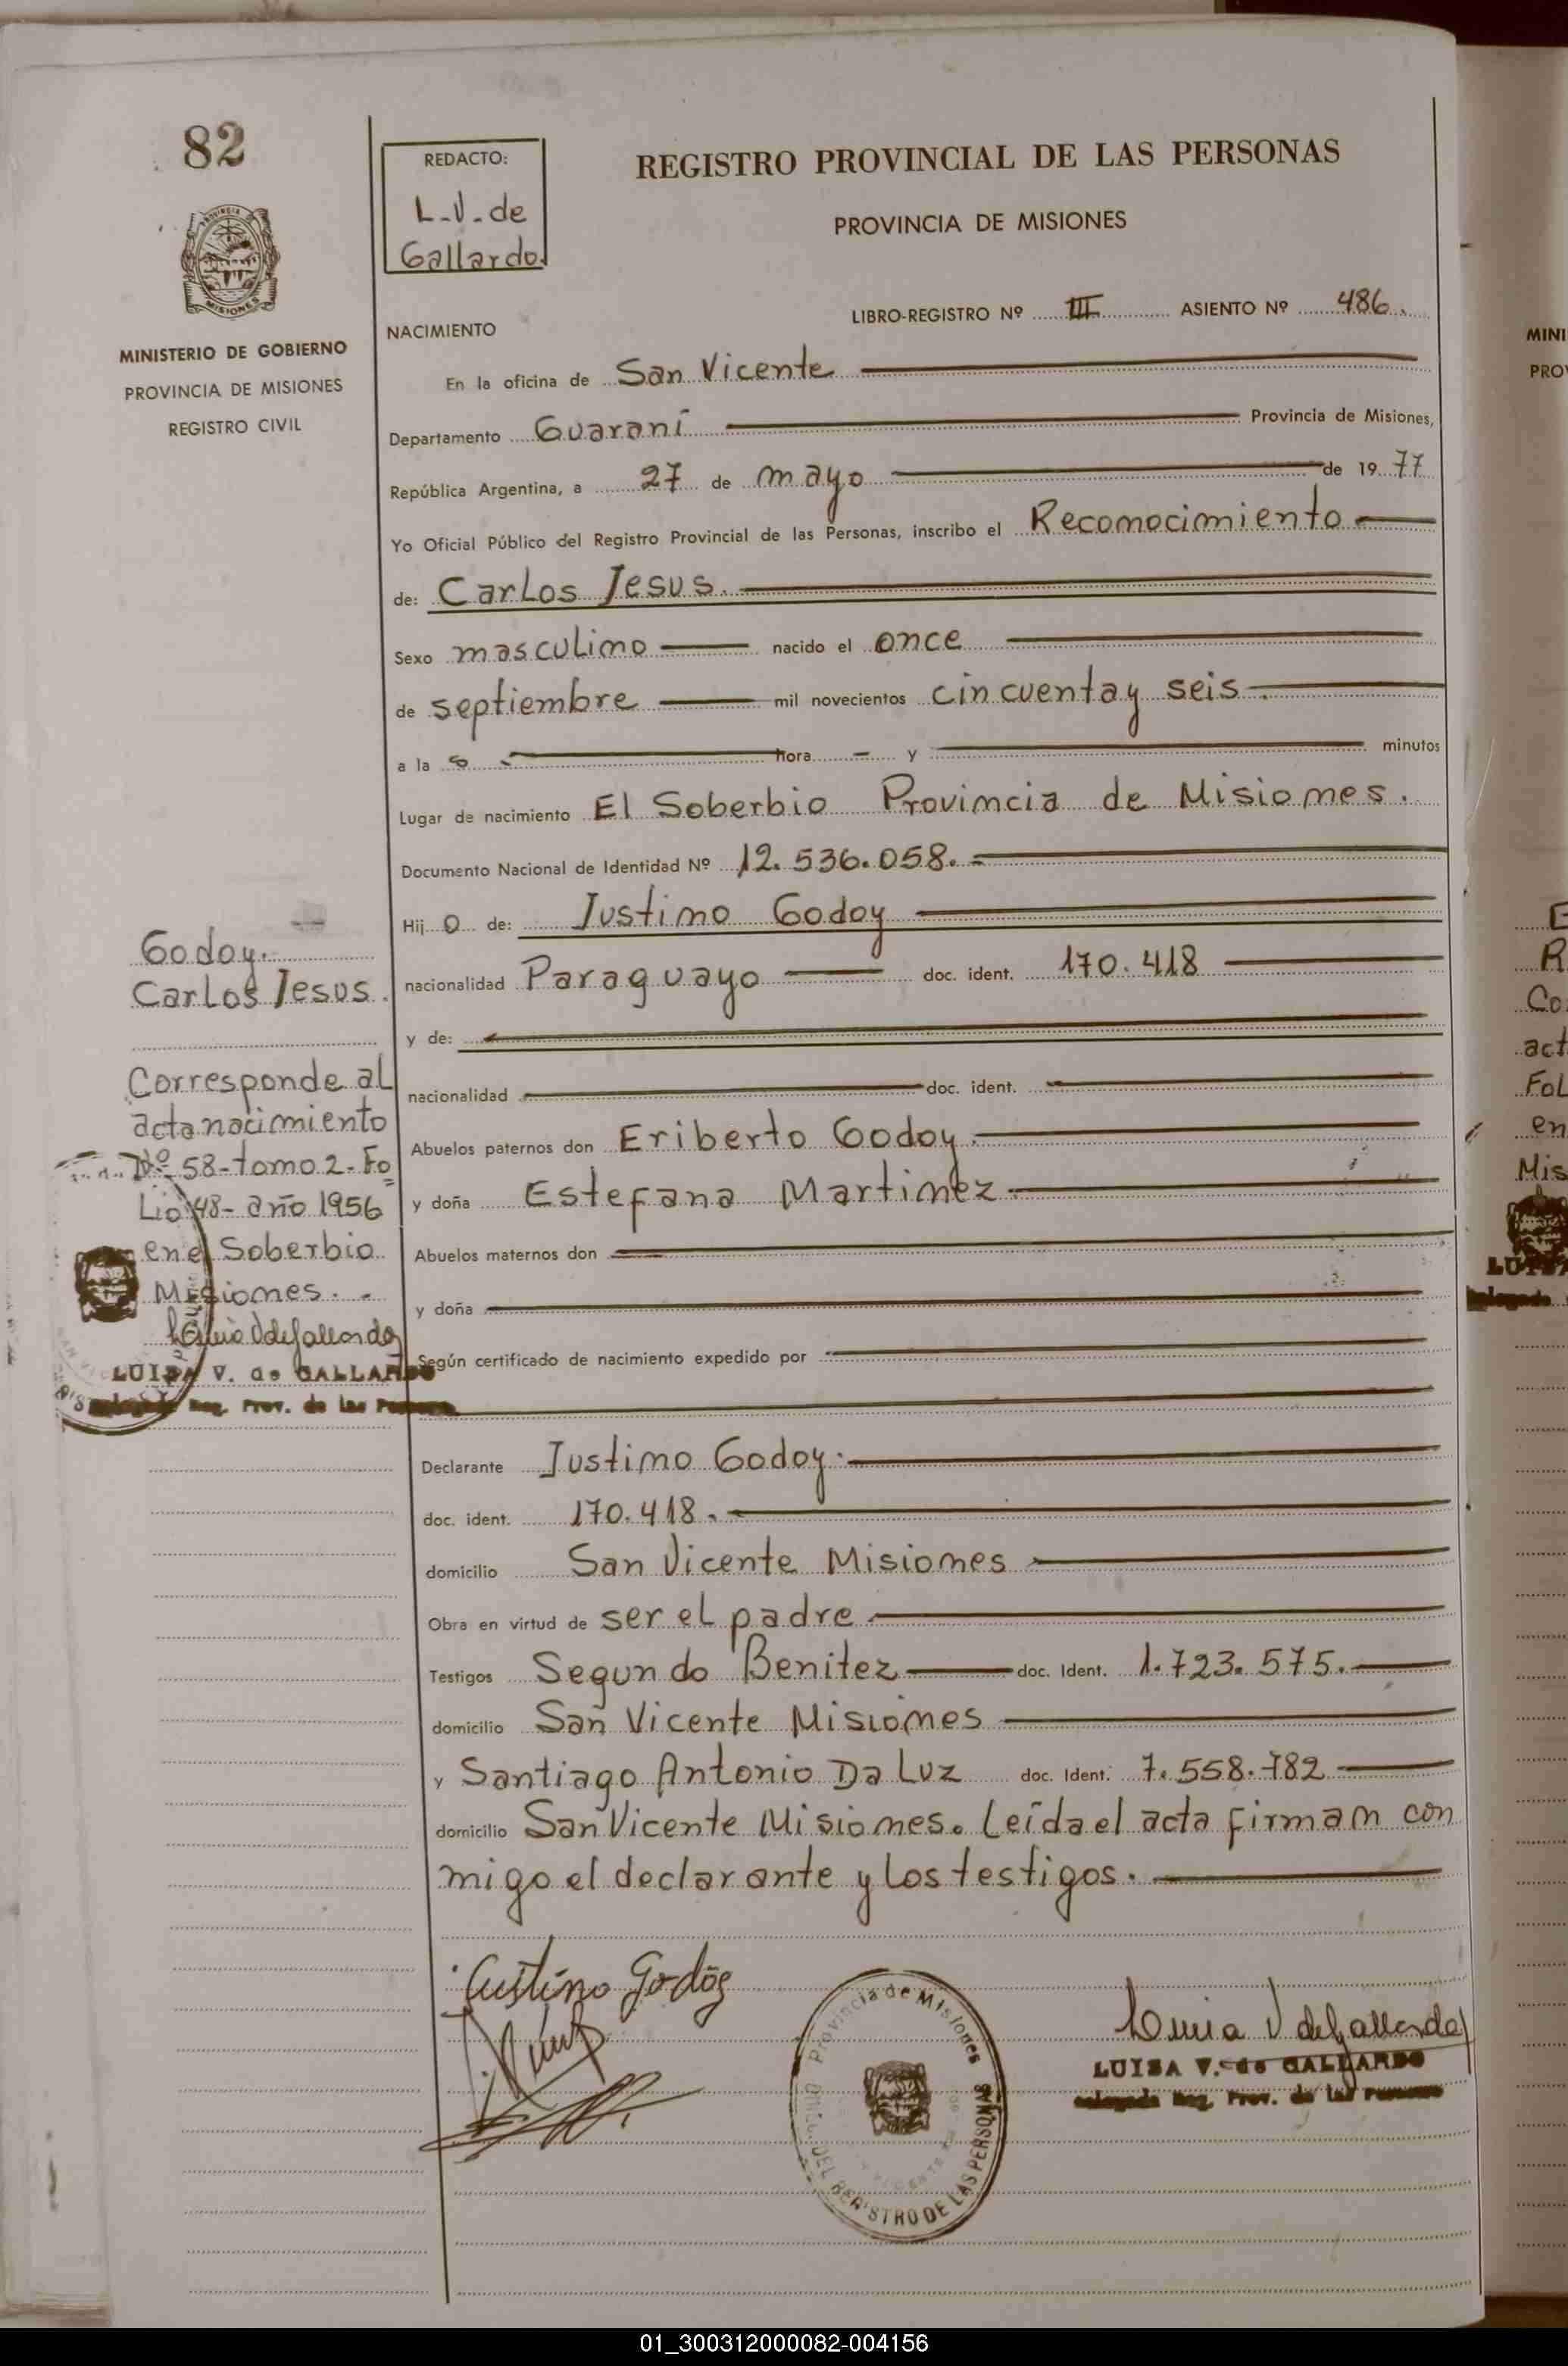 82
REDACTO:
L.V. de
Gallardo.
REGISTRO PROVINCIAL DE LAS PERSONAS
PROVINCIA DE MISIONES
MISIONES
MINISTERIO DE GOBIERNO
PROVINCIA DE MISIONES
REGISTRO CIVIL
LIBRO-REGISTRO Nº III ASIENTO Nº 486.
NACIMIENTO
En la oficina de San Vicente
Departamento Guaraní Provincia de Misiones,
República Argentina, a 27 de mayo de 1977
Yo Oficial Público del Registro Provincial de las Personas, inscribo el Reconocimiento
de: Carlos Jesus.
Sexo masculino nacido el once
de septiembre mil novecientos cincuenta y seis.
a la s hora y minutos
Lugar de nacimiento El Soberbio Provincia de Misiones.
Documento Nacional de Identidad Nº 12.536.058.
Hij o de: Justino Godoy
nacionalidad Paraguayo doc. ident. 170.418
y de:
nacionalidad doc. ident.
Abuelos paternos don Eriberto Godoy.
y doña Estefana Martinez.
Abuelos maternos don
y doña
Según certificado de nacimiento expedido por
Declarante Justino Godoy.
doc. ident. 170.418.
domicilio San Vicente Misiones
Obra en virtud de ser el padre
Testigos Segundo Benitez doc. Ident. 1.723.575.
domicilio San Vicente Misiones
y Santiago Antonio Da Luz doc. Ident. 7.558.782
domicilio San Vicente Misiones. Leída el acta firman con
migo el declarante y los testigos.
Godoy.
Carlos Jesus.
Corresponde al
acta nacimiento
Nº 58-tomo 2-Fo
lio 48- año 1956
en el Soberbio
Misiones.
Luisa V de Gallardo
LUISA V. de GALLARDO
Delegada Reg. Prov. de las Personas
Justino Godoy
Provincia de Misiones
DIREC. DEL REGISTRO DE LAS PERSONAS
Luisa V de Gallardo
LUISA V. de GALLARDO
Delegada Reg. Prov. de las Personas
MINI
PRO
E
R
Co
act
Fol
en
Mis
LUISA
Delegada
01_300312000082-004156